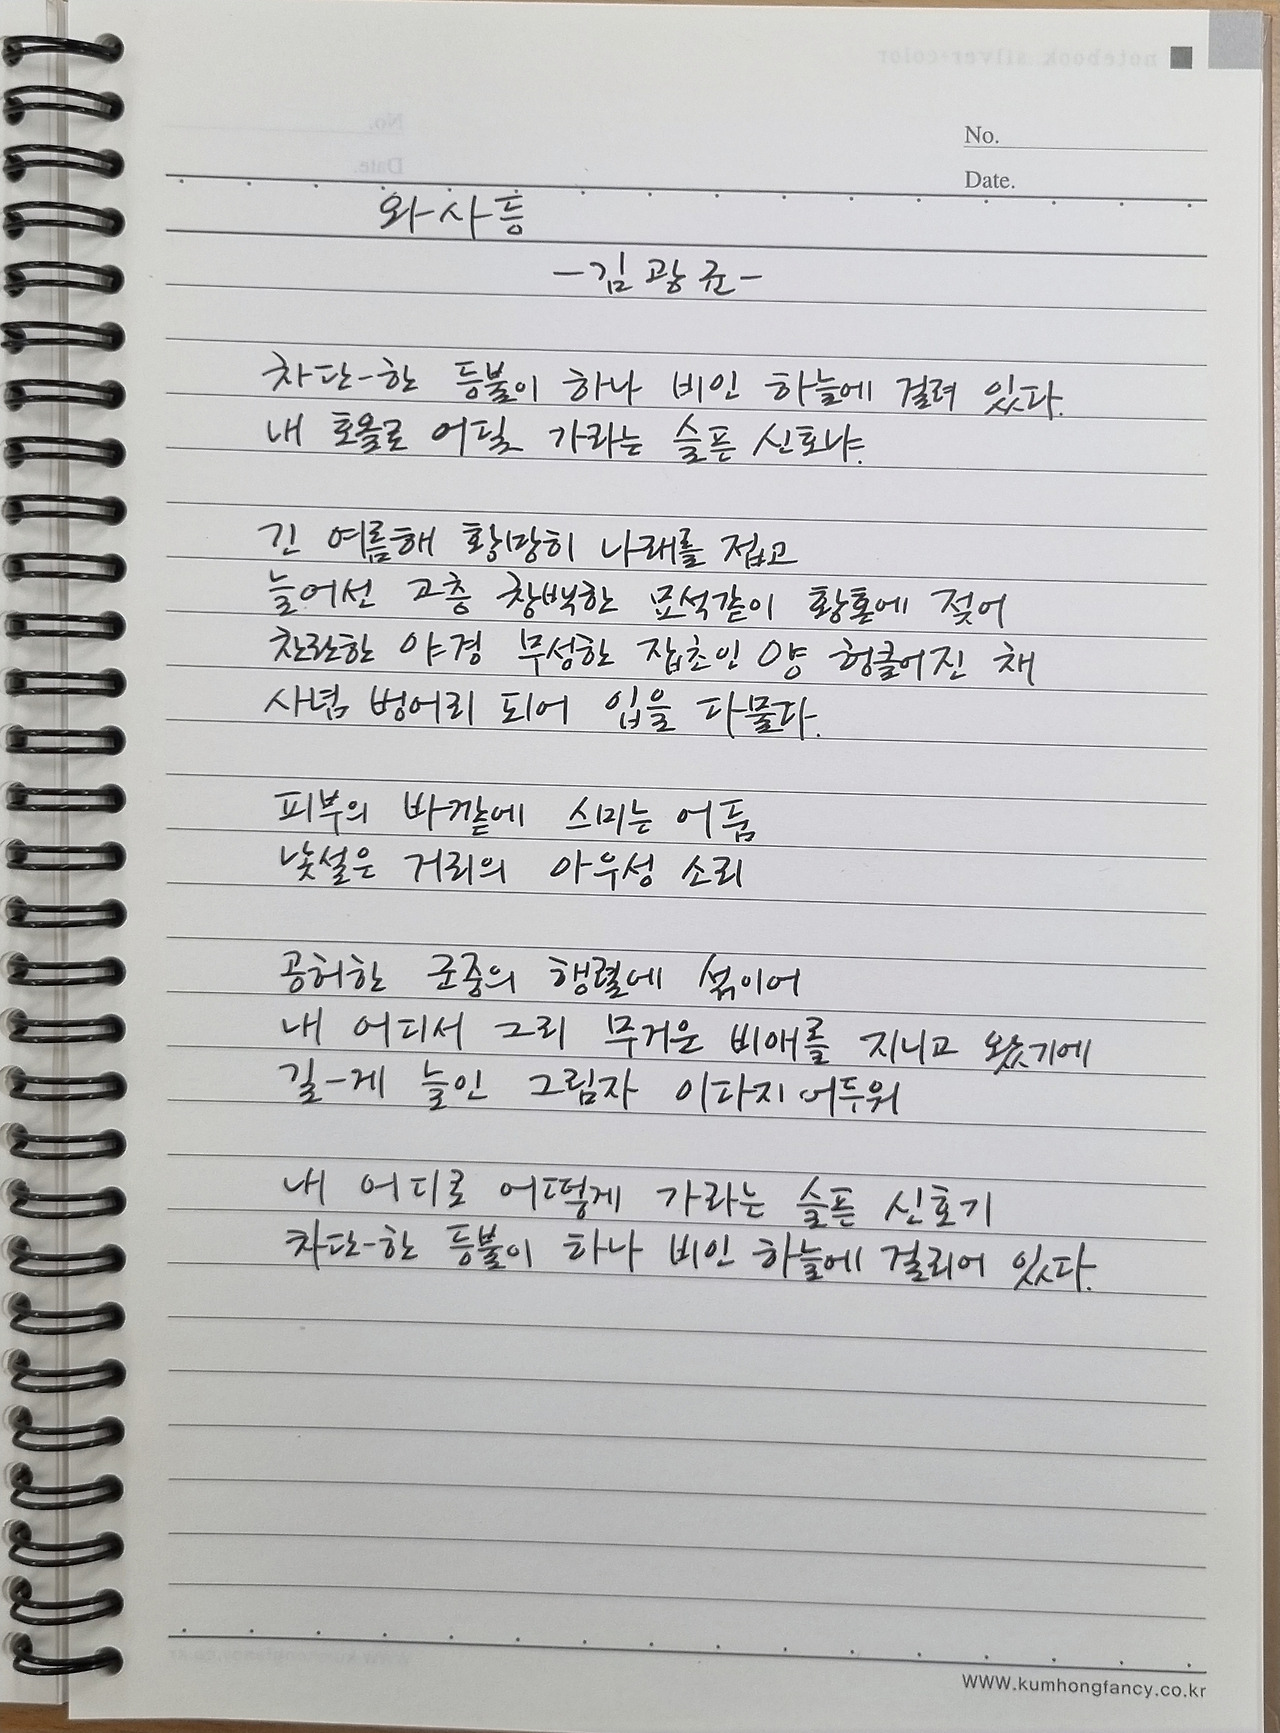 notebook silver-color
No.
Date.
No.
Date.
와사등
-김광균-
차단-한 등불이 하나 비인 하늘에 걸려 있다.
내 호올로 어딜 가라는 슬픈 신호냐.
긴 여름해 황망히 나래를 접고
늘어선 고층 창백한 묘석같이 황혼에 젖어
찬란한 야경 무성한 잡초인 양 헝클어진 채
사념 벙어리 되어 입을 다물다.
피부의 바깥에 스미는 어둠
낯설은 거리의 아우성 소리
공허한 군중의 행렬에 섞이어
내 어디서 그리 무거운 비애를 지니고 왔기에
길-게 늘인 그림자 이다지 어두워
내 어디로 어떻게 가라는 슬픈 신호기
차단-한 등불이 하나 비인 하늘에 걸리어 있다.
www.kumhongfancy.co.kr
www.kumhongfancy.co.kr